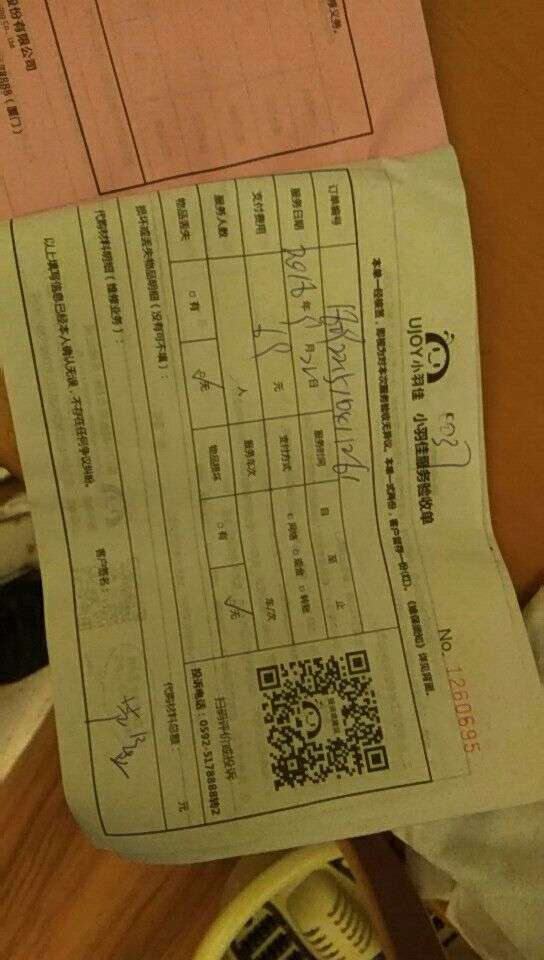 股份有限公司
8888（厦门）
UJOY小羽佳 小羽佳服务验收单
No. 1260695
本单一经签署，即视为对本次服务验收无异议。本单一式两份，客户留存一份(红)。《维保须知》详见背面。
订单编号
服务时间 自 至 止
服务日期 2018年 月 日
支付方式 网络 现金 转账
支付费用 元
服务车次 车/次
服务人数 人
物品丢失 有 无
物品损坏 有 无
扫码评价或投诉
投诉电话：0592-5178888转2
损坏或丢失物品明细（没有可不填）：
代购材料明细（维修业务）：
代购材料总额： 元
以上填写信息已经本人确认无误，不存在任何争议纠纷。
客户签名：